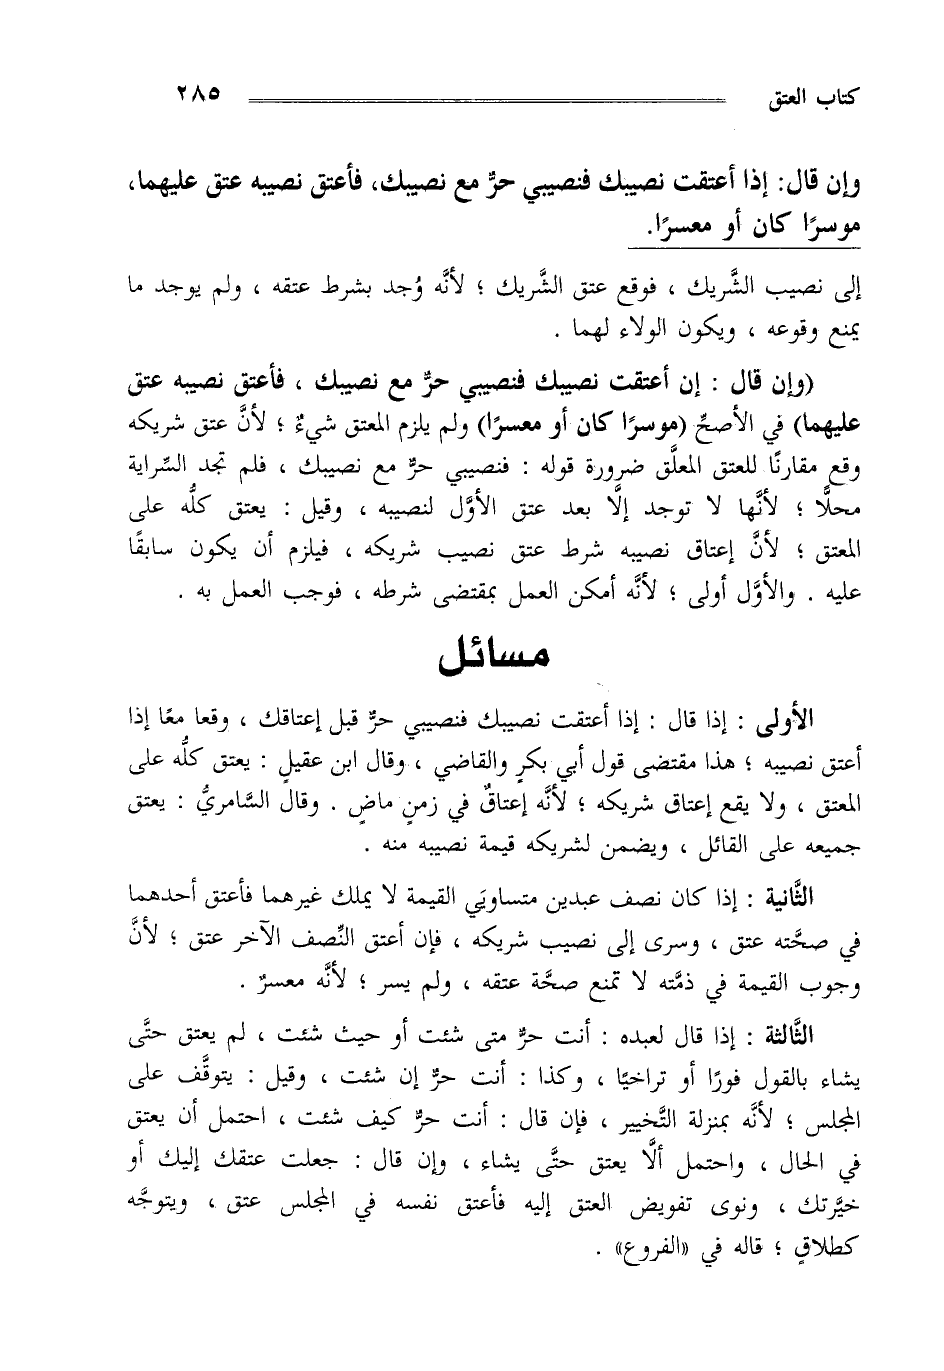 كتاب العتق ٢٨٥
وإن قال: إذا أعتقت نصيبك فنصيبي حرٌّ مع نصيبك، فأعتق نصيبه عتق عليهما،
موسرًا كان أو معسرًا.
إلى نصيب الشَّريك ، فوقع عتق الشَّريك ؛ لأنَّه وُجد بشرط عتقه ، ولم يوجد ما
يمنع وقوعه ، ويكون الولاء لهما .
(وإن قال : إن أعتقت نصيبك فنصيبي حرٌّ مع نصيبك ، فأعتق نصيبه عتق
عليهما) في الأصحِّ (موسرًا كان أو معسرًا) ولم يلزم المعتق شيءٌ ؛ لأنَّ عتق شريكه
وقع مقارنًا للعتق المعلَّق ضرورة قوله : فنصيبي حرٌّ مع نصيبك ، فلم تجد السِّراية
محلًّا ؛ لأنَّها لا توجد إلَّا بعد عتق الأوَّل لنصيبه ، وقيل : يعتق كلُّه على
المعتق ؛ لأنَّ إعتاق نصيبه شرط عتق نصيب شريكه ، فيلزم أن يكون سابقًا
عليه . والأوَّل أولى ؛ لأنَّه أمكن العمل بمقتضى شرطه ، فوجب العمل به .
مسائل
الأولى : إذا قال : إذا أعتقت نصيبك فنصيبي حرٌّ قبل إعتاقك ، وقعا معًا إذا
أعتق نصيبه ؛ هذا مقتضى قول أبي بكرٍ والقاضي ، وقال ابن عقيلٍ : يعتق كلُّه على
المعتق ، ولا يقع إعتاق شريكه ؛ لأنَّه إعتاقٌ في زمنٍ ماضٍ . وقال السَّامريُّ : يعتق
جميعه على القائل ، ويضمن لشريكه قيمة نصيبه منه .
الثَّانية : إذا كان نصف عبدين متساويَي القيمة لا يملك غيرهما فأعتق أحدهما
في صحَّته عتق ، وسرى إلى نصيب شريكه ، فإن أعتق النِّصف الآخر عتق ؛ لأنَّ
وجوب القيمة في ذمَّته لا تمنع صحَّة عتقه ، ولم يسر ؛ لأنَّه معسرٌ .
الثَّالثة : إذا قال لعبده : أنت حرٌّ متى شئت أو حيث شئت ، لم يعتق حتَّى
يشاء بالقول فورًا أو تراخيًا ، وكذا : أنت حرٌّ إن شئت ، وقيل : يتوقَّف على
المجلس ؛ لأنَّه بمنزلة التَّخيير ، فإن قال : أنت حرٌّ كيف شئت ، احتمل أن يعتق
في الحال ، واحتمل ألَّا يعتق حتَّى يشاء ، وإن قال : جعلت عتقك إليك أو
خيَّرتك ، ونوى تفويض العتق إليه فأعتق نفسه في المجلس عتق ، ويتوجَّه
كطلاقٍ ؛ قاله في «الفروع» .